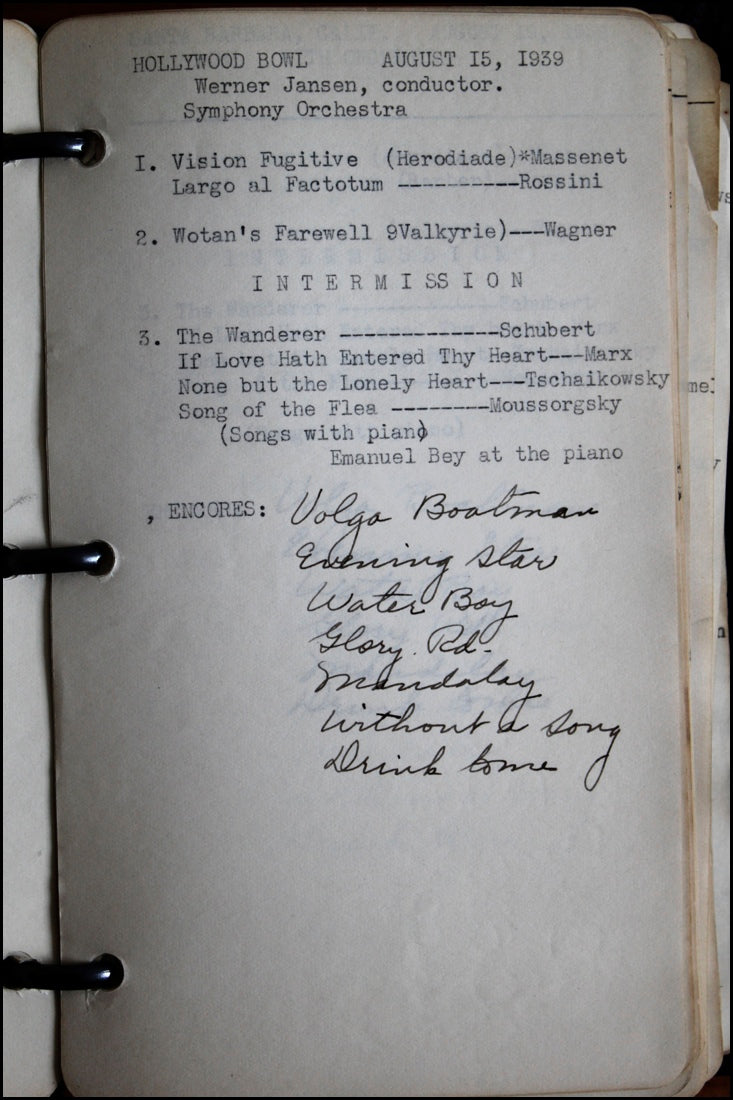 HOLLYWOOD BOWL AUGUST 15, 1939
Werner Jansen, conductor.
Symphony Orchestra
1. Vision Fugitive (Herodiade)*Massenet
Largo al Factotum ----------Rossini
2. Wotan's Farewell 9Valkyrie)---Wagner
I N T E R M I SS I O N
3. The Wanderer -------------Schubert
If Love Hath Entered Thy Heart---Marx
None but the Lonely Heart---Tschaikowsky
Song of the Flea --------Moussorgsky
(Songs with piano)
Emanuel Bey at the piano
, ENCORES: Volga Boatman
Evening Star
Water Boy
Glory Rd.
Mandalay
Without a Song
Drink to me